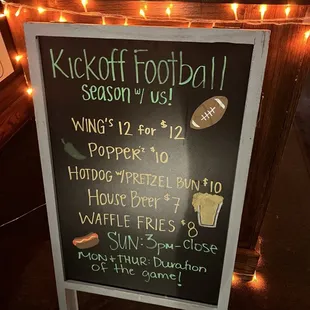 Kickoff Football
Season w/ us!
WING'S 12 for $12
POPPER'S $10
HOTDOG w/PRETZEL BUN $10
House Beer $7
WAFFLE FRIES $8
SUN: 3pm-close
MON + THUR: Duration
of the game!